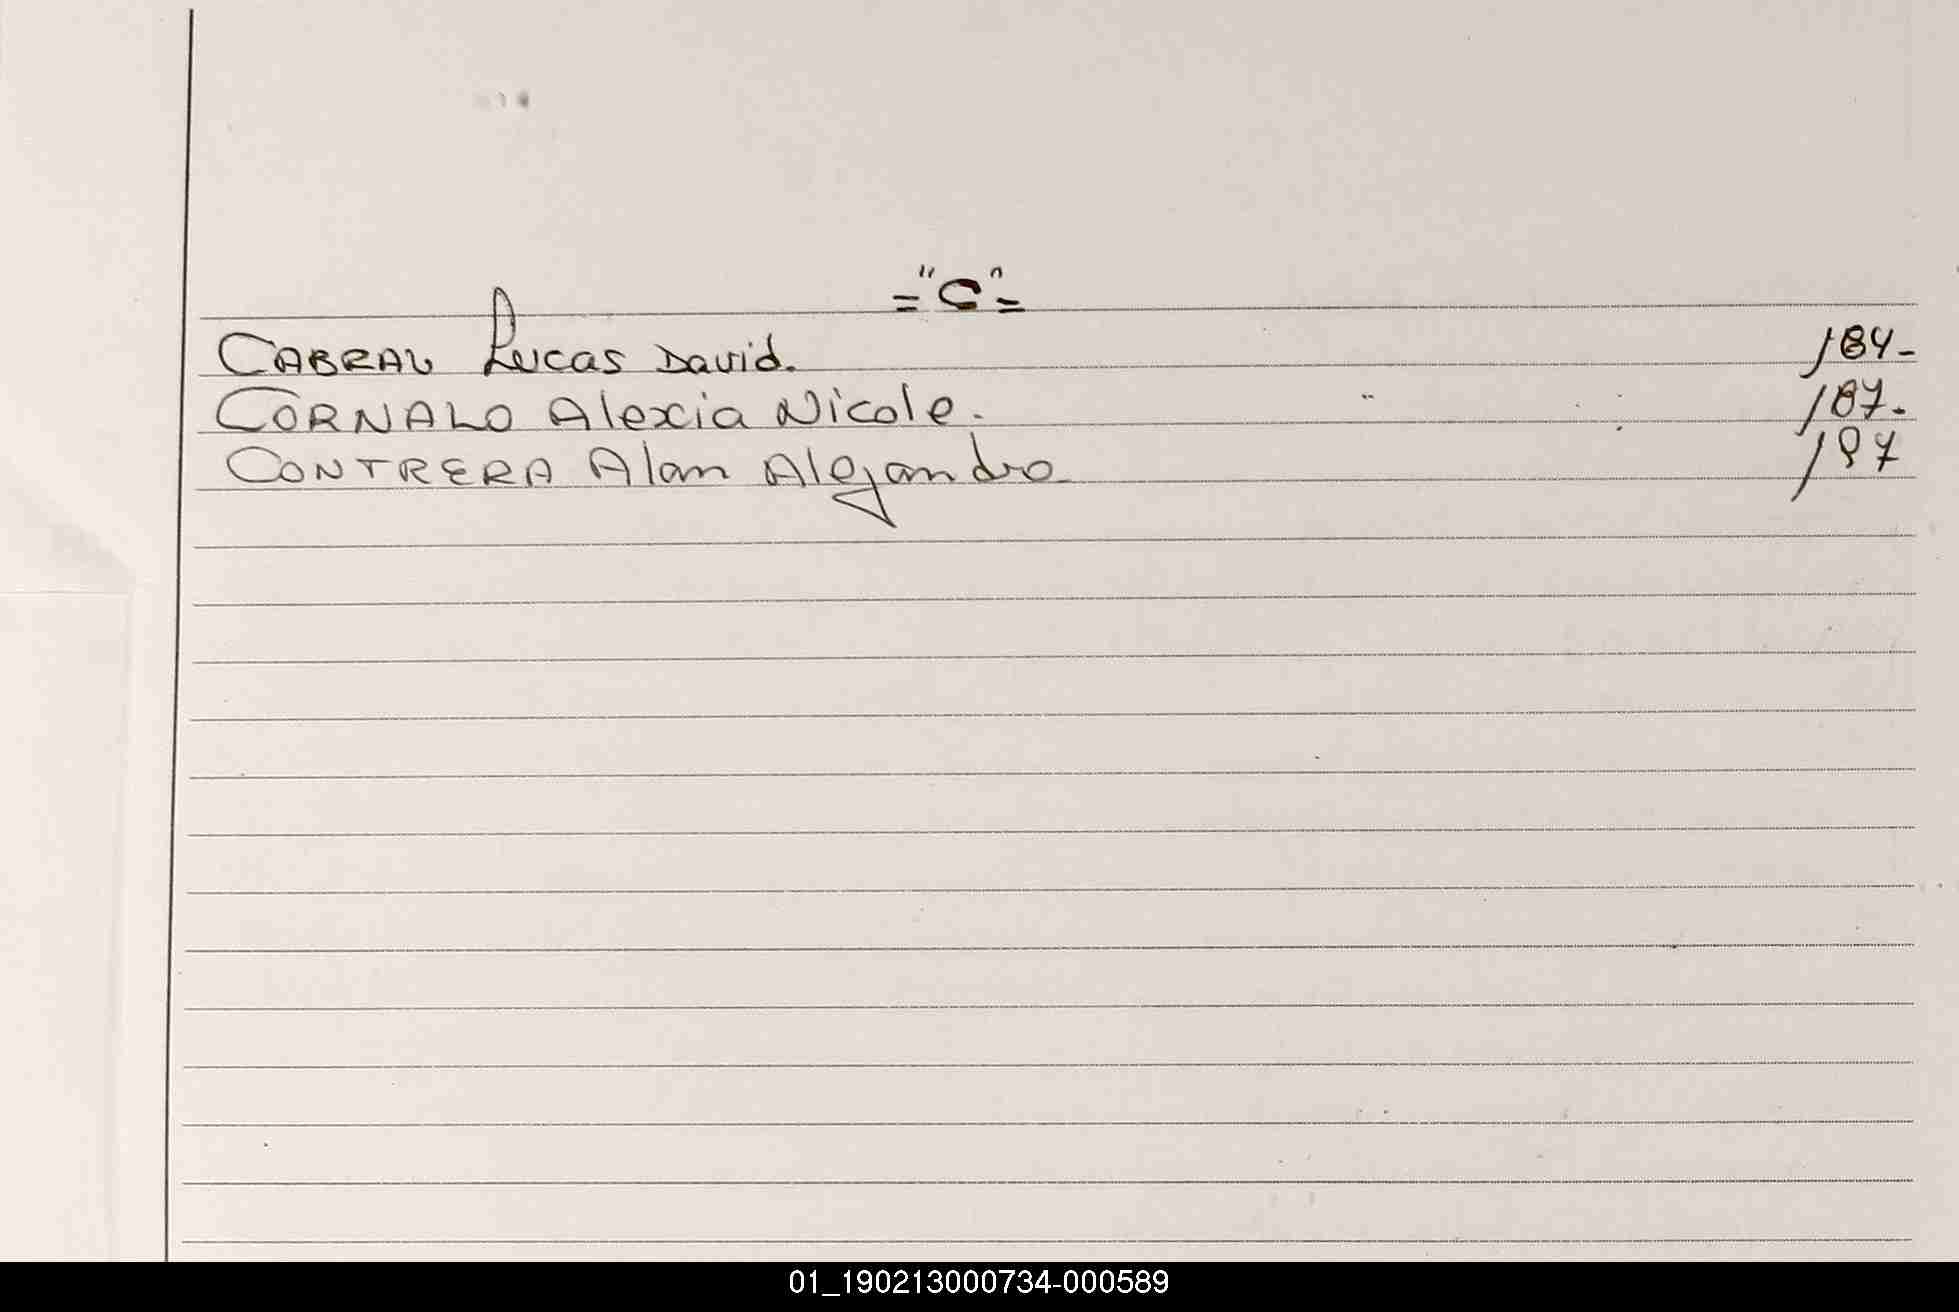 ="C"=
CABRAL Lucas David. 184-
CORNALO Alexia Nicole. 187-
CONTRERA Alan Alejandro 197
01_190213000734-000589